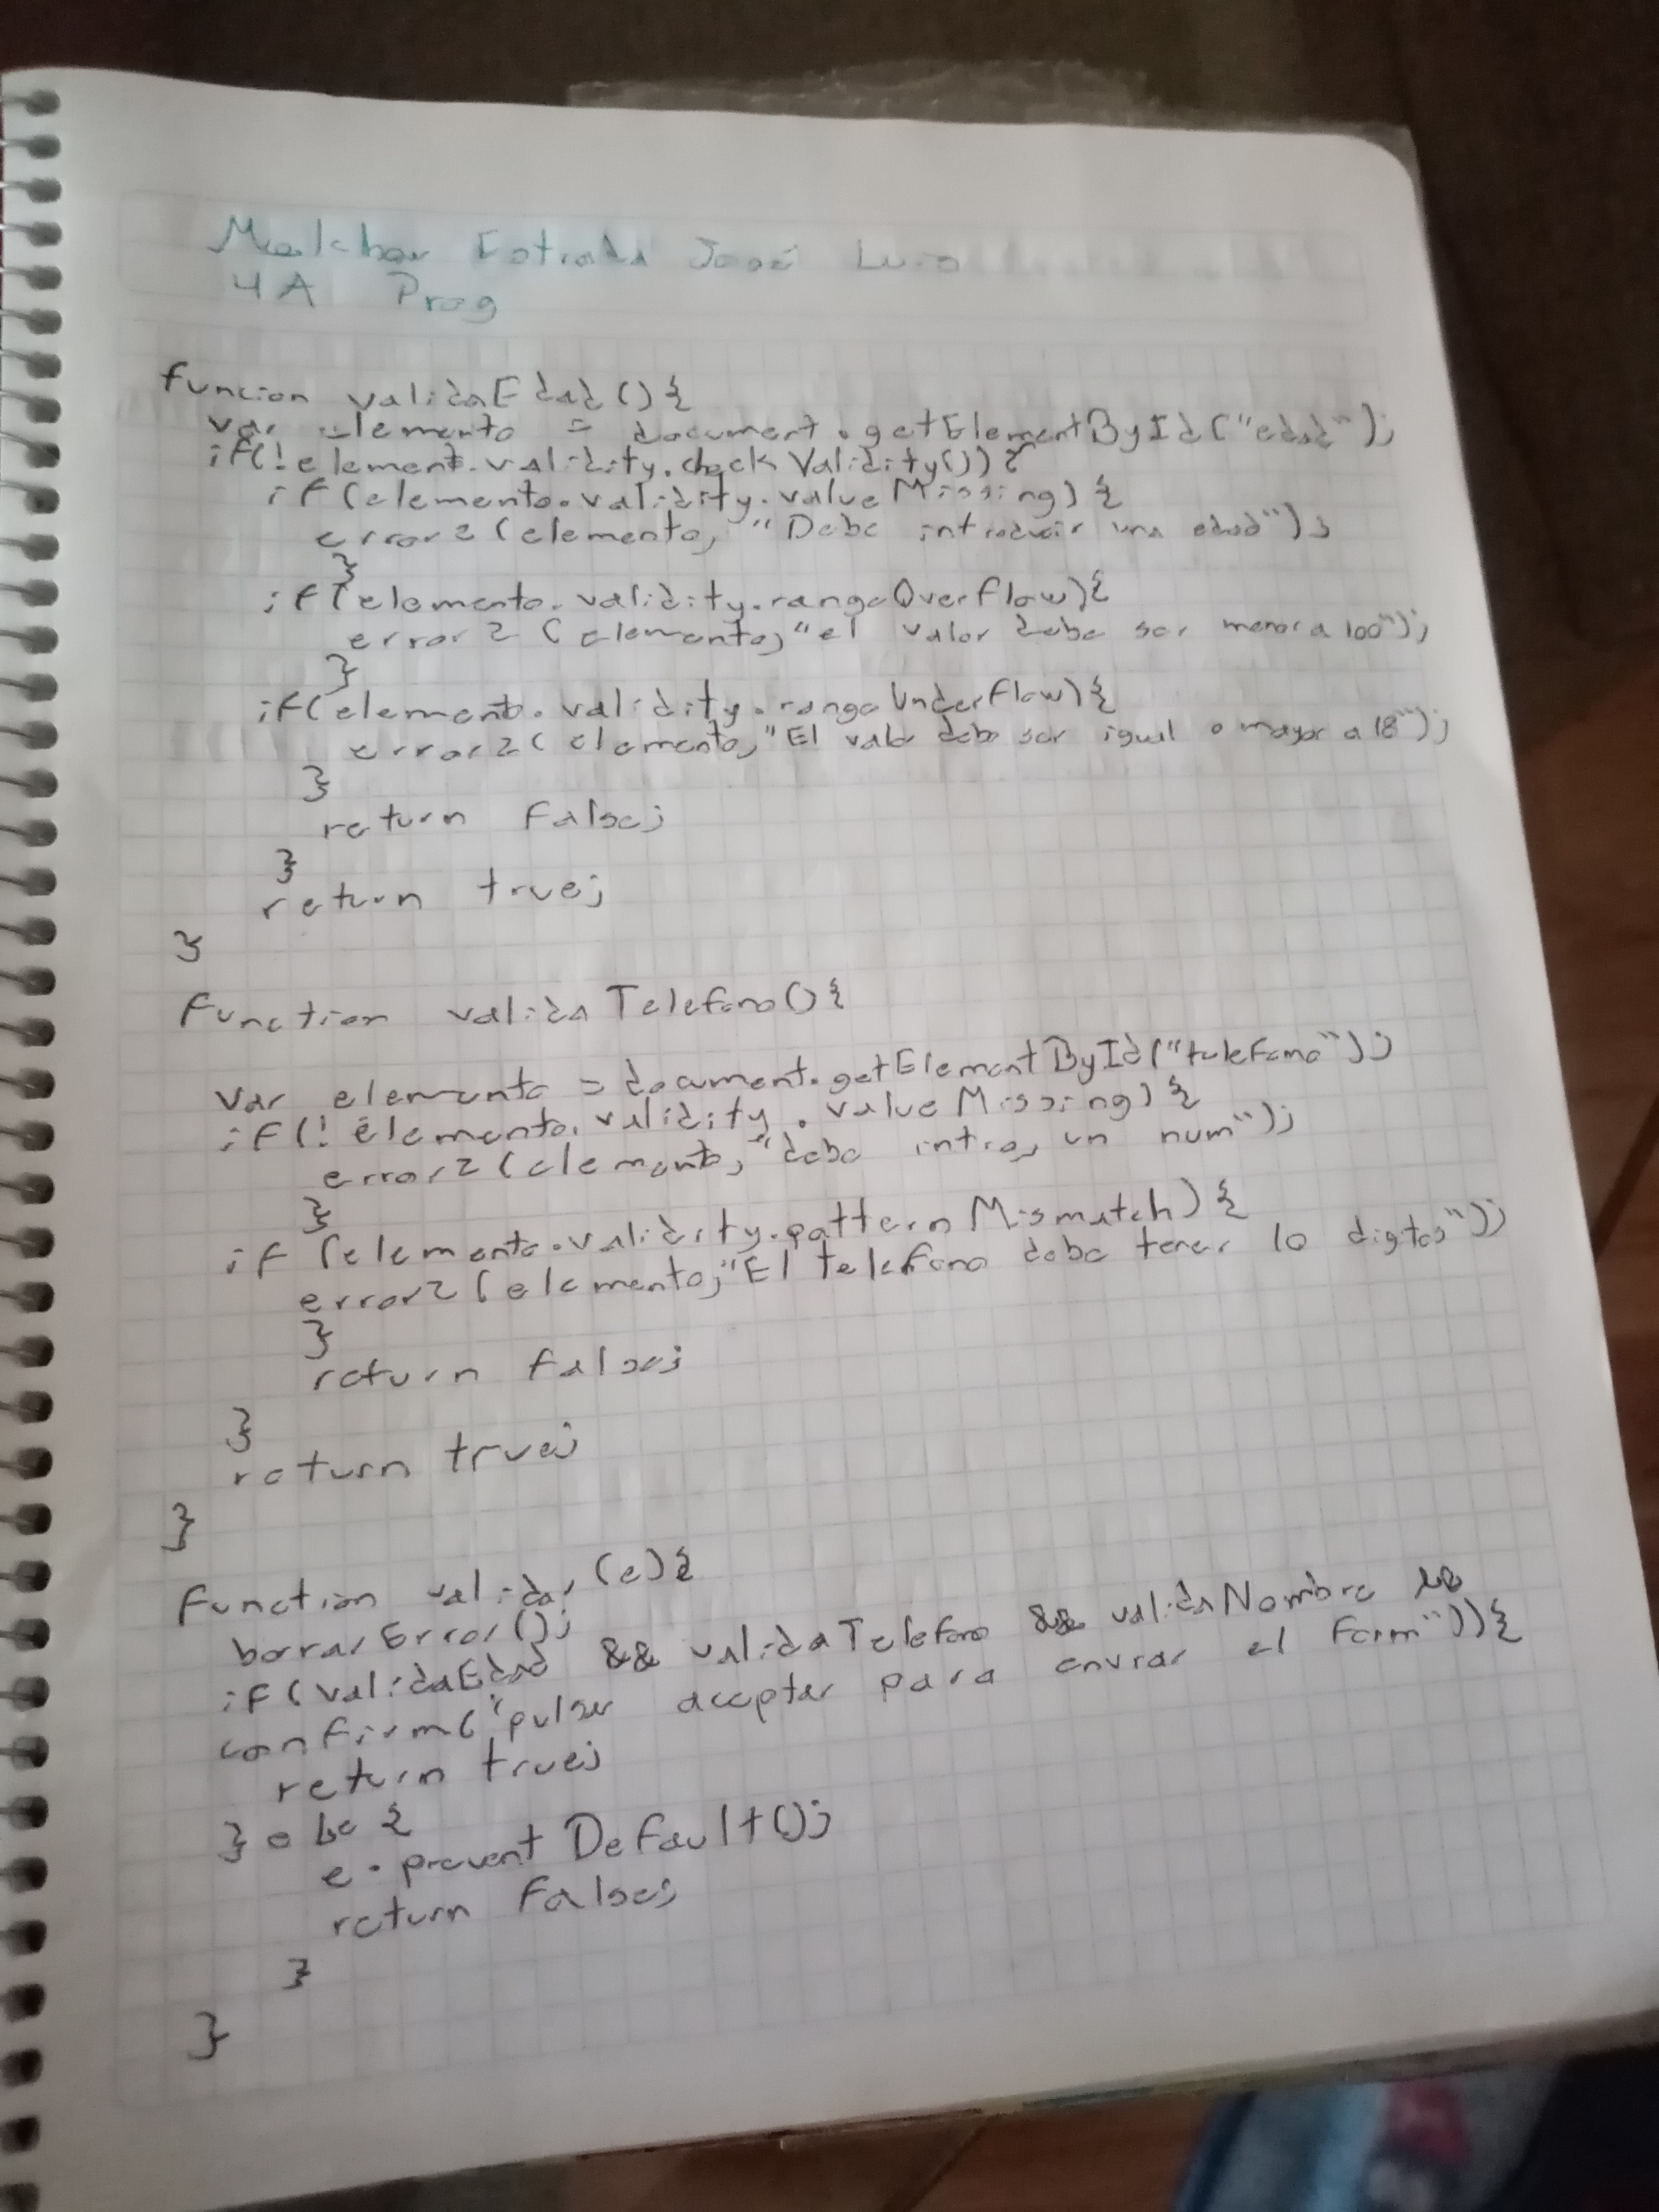 Melchor Estrada José Luis
4A Prog
funcion validaEdad(){
var elemento = document.getElementById("edad");
if(!element.validity.checkValidity()){
if(elemento.validity.valueMissing){
error2(elemento, "Debe introducir una edad");
}
if(elemento.validity.rangeOverflow){
error2(elemento, "el valor debe ser menor a 100");
}
if(elemento.validity.rangeUnderflow){
error2(elemento, "El valor debe ser igual o mayor a 18");
}
return false;
}
return true;
}
function validaTelefono(){
var elemento = document.getElementById("telefono");
if(!elemento.validity.valueMissing){
error2(elemento, "debe intro, un num");
}
if(elemento.validity.patternMismatch){
error2(elemento, "El telefono debe tener 10 digitos");
}
return false;
}
return true;
}
function validar(e){
borrarError();
if(validaEdad && validaTelefono && validaNombre &&
confirm("pulsar aceptar para enviar el form")){
return true;
} else {
e.preventDefault();
return false;
}
}